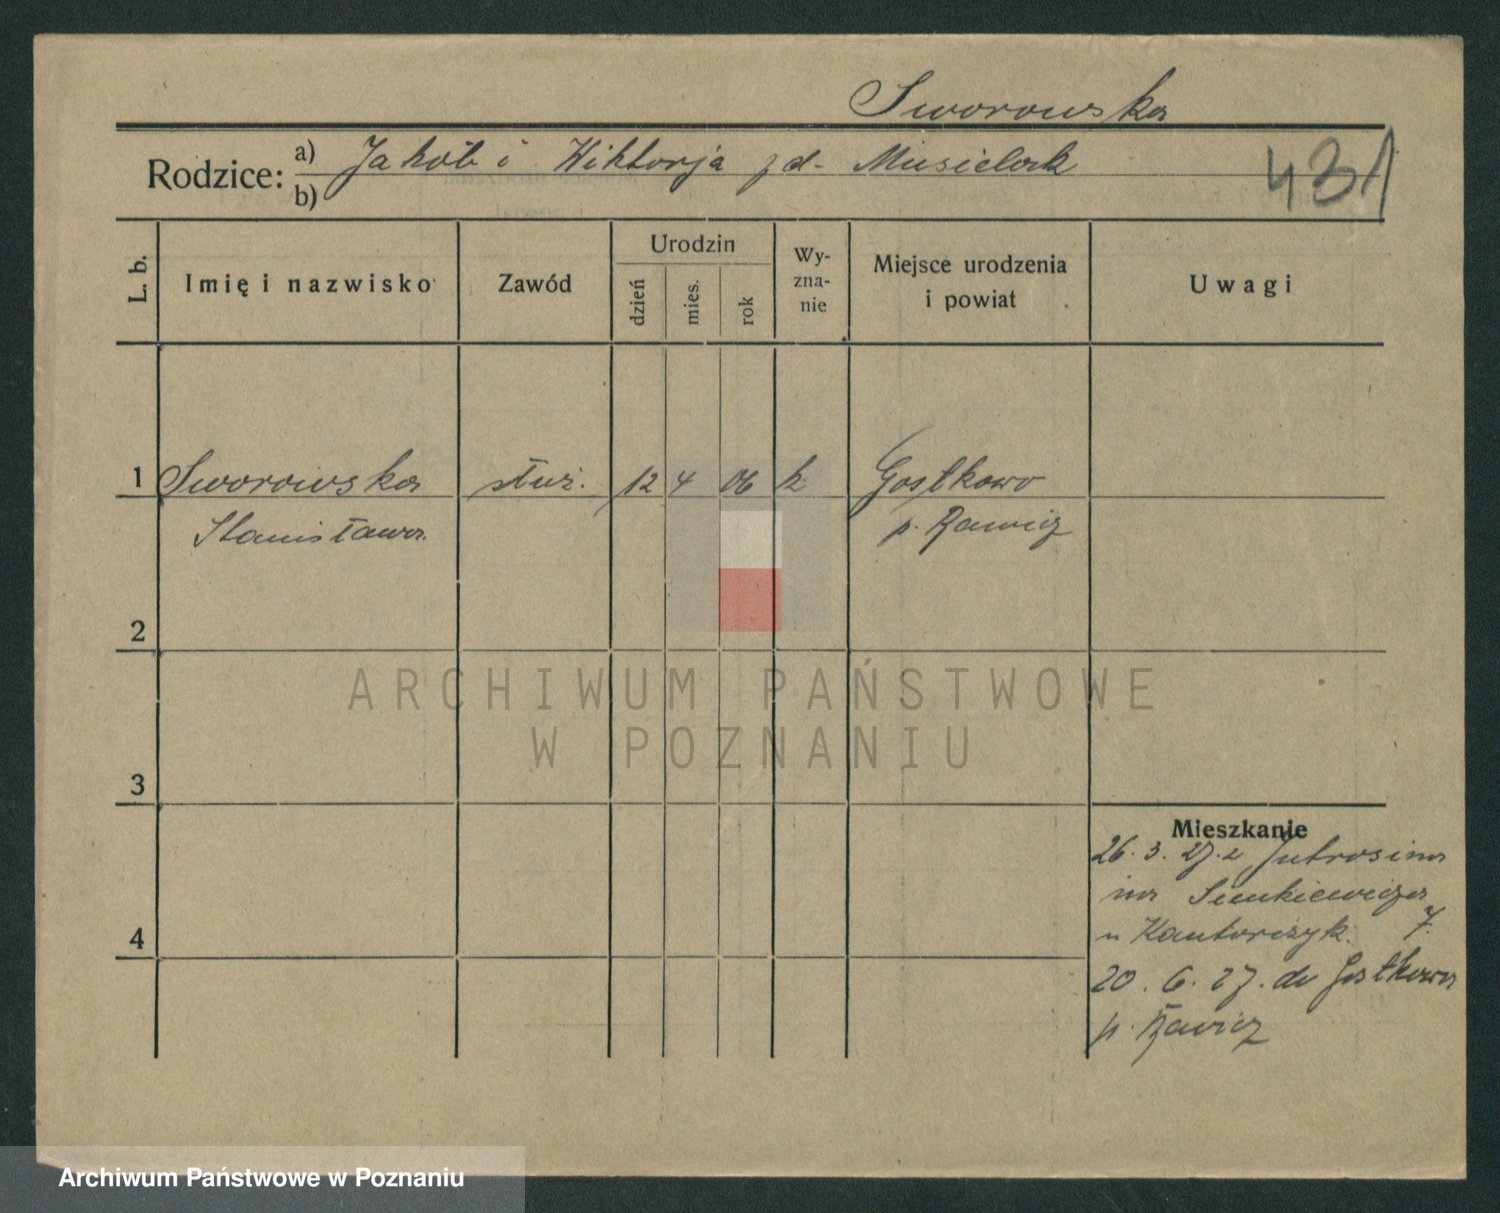 Sworowska
Rodzice:
a) Jakób i Wiktorja z d. Musielak
b)
431
L. b.
Imię i nazwisko
Zawód
Urodzin
dzień
mies.
rok
Wy-
zna-
nie
Miejsce urodzenia
i powiat
Uwagi
1 Sworowska służ. 12 4 06 k. Gostkowo
Stanisława. p. Rawicz
2
3
4
Mieszkanie
26. 3. 27. z Jutrosina
na Sienkiewicza
u Kantorczyk. 7.
20. 6. 27. do Gostkowa
p. Rawicz
ARCHIWUM PAŃSTWOWE
W POZNANIU
Archiwum Państwowe w Poznaniu